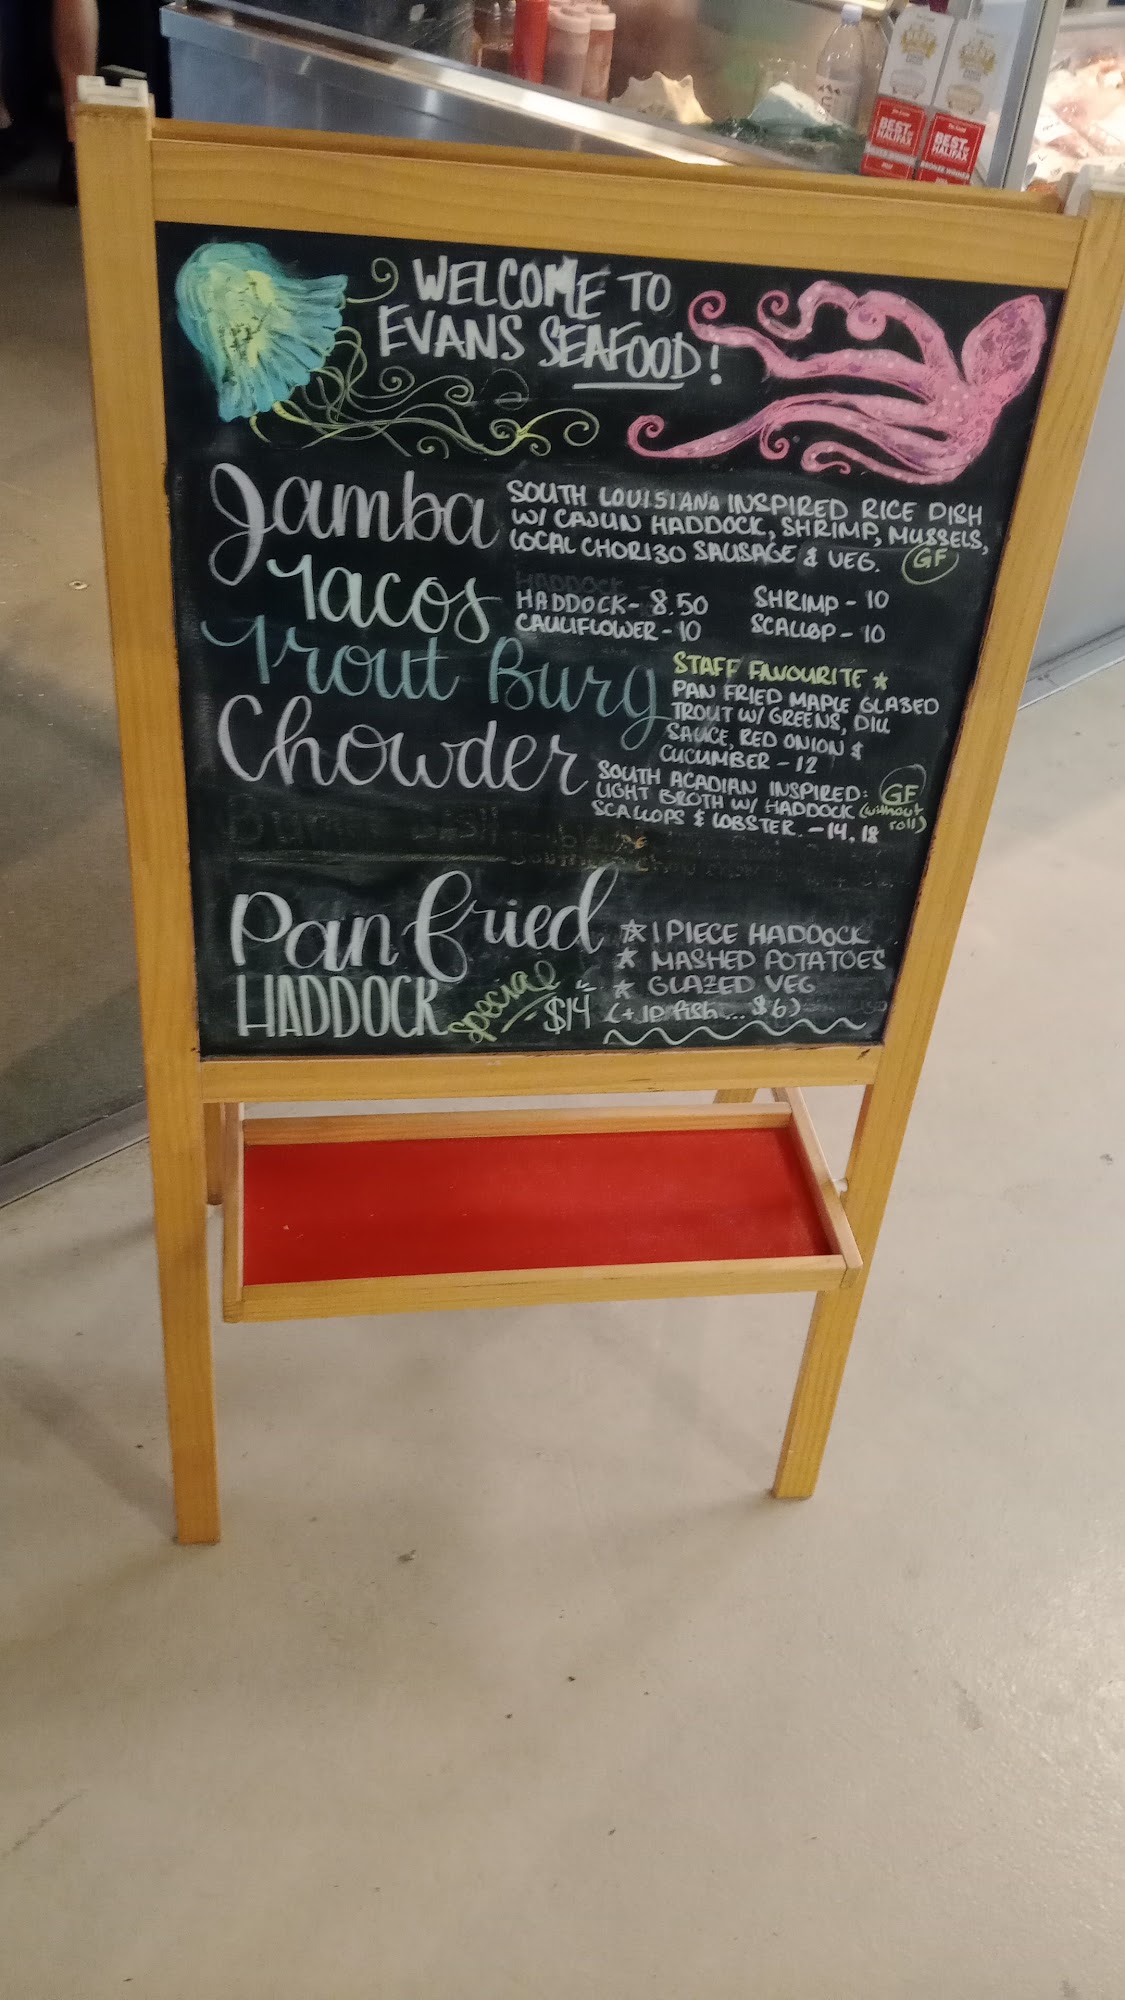 BEST OF HALIFAX
BEST OF HALIFAX
BRONZE WINNER
WELCOME TO
EVANS SEAFOOD!
Jamba
SOUTH LOUISIANA INSPIRED RICE DISH
W/ CAJUN HADDOCK, SHRIMP, MUSSELS,
LOCAL CHORIZO SAUSAGE & VEG. GF
Tacos
HADDOCK
HADDOCK - 8.50 SHRIMP - 10
CAULIFLOWER - 10 SCALLOP - 10
Trout Burg
STAFF FAVOURITE ★
PAN FRIED MAPLE GLAZED
TROUT W/ GREENS, DILL
SAUCE, RED ONION &
CUCUMBER - 12
Chowder
SOUTH ACADIAN INSPIRED: GF
LIGHT BROTH W/ HADDOCK (without
SCALLOPS & LOBSTER. - 14, 18 roll)
Pan fried
HADDOCK special $14
☆ 1 PIECE HADDOCK
☆ MASHED POTATOES
☆ GLAZED VEG
(+ 1p fish ... $6)